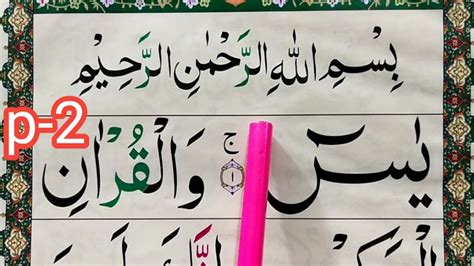 بِسْمِ اللهِ الرَّحْمٰنِ الرَّحِيْمِ
p-2
يٰسٓ ۚ ج ۝١ وَالْقُرْاٰنِ